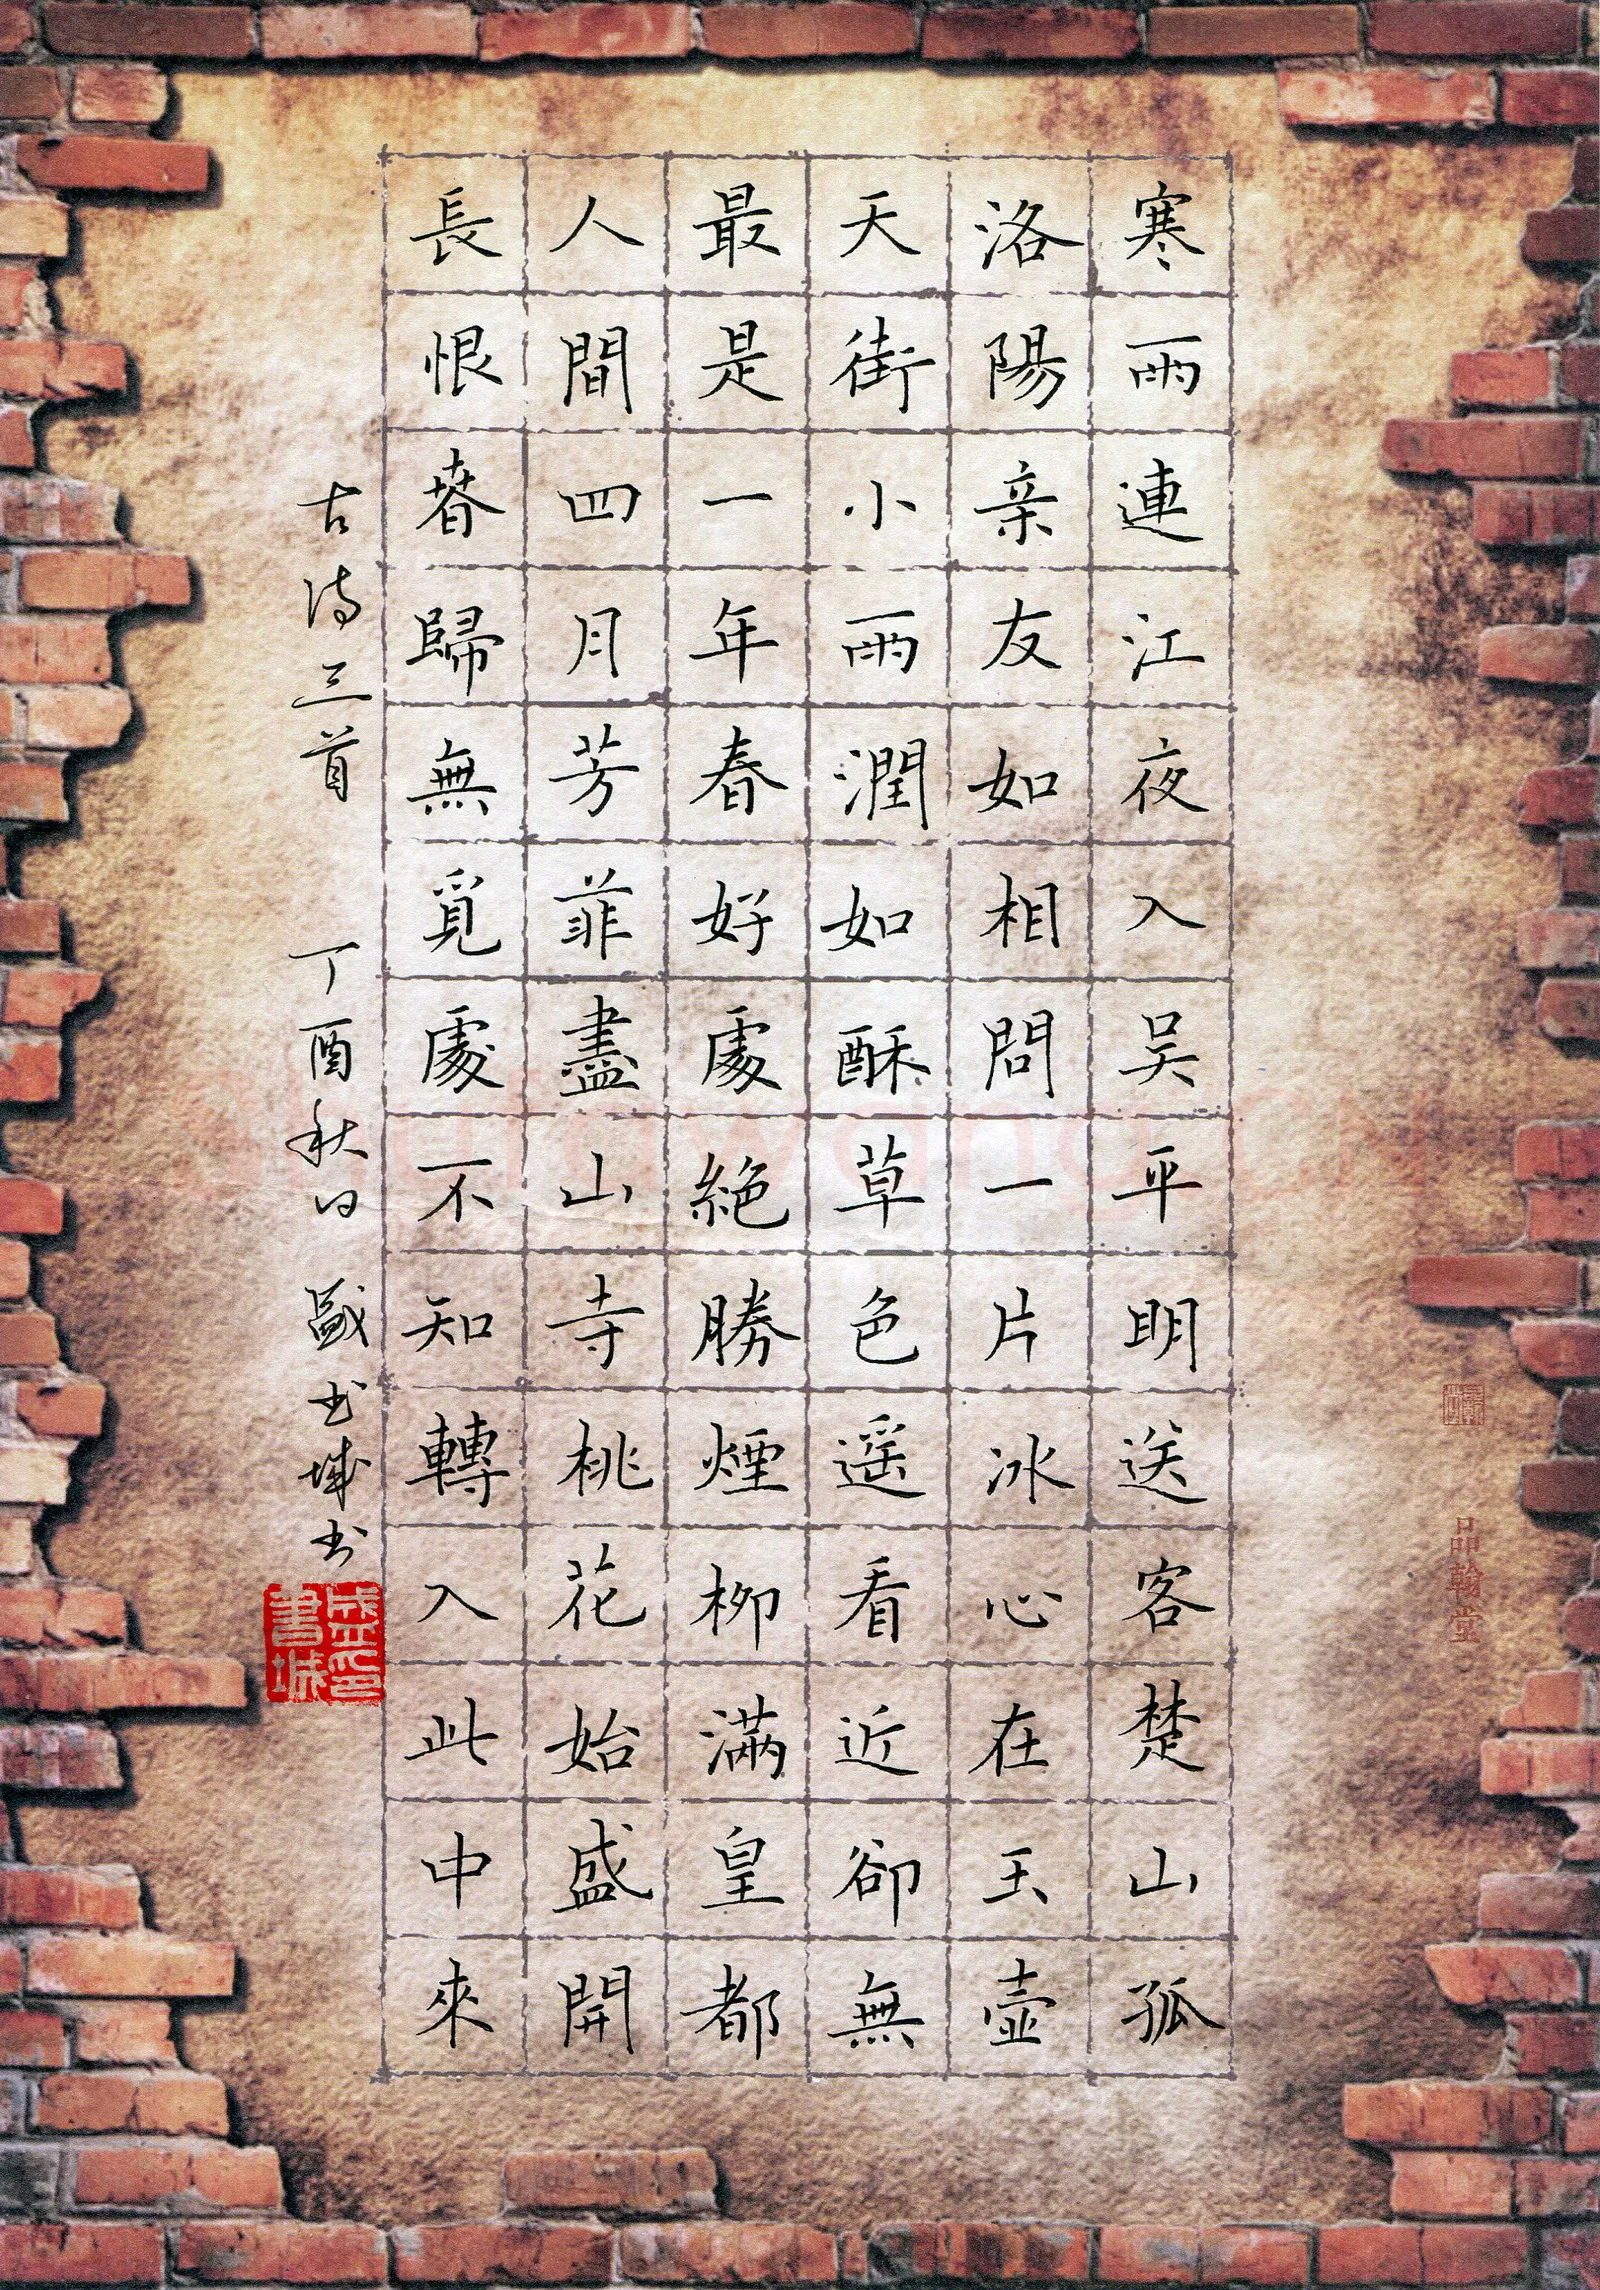 寒雨連江夜入吴平明送客楚山孤
洛陽亲友如相問一片冰心在玉壺
天街小雨潤如酥草色遥看近卻無
最是一年春好處絶勝煙柳滿皇都
人間四月芳菲盡山寺桃花始盛開
長恨春歸無覓處不知轉入此中來
古诗三首 丁酉秋日 盛书城书
盛印書城
品翰堂